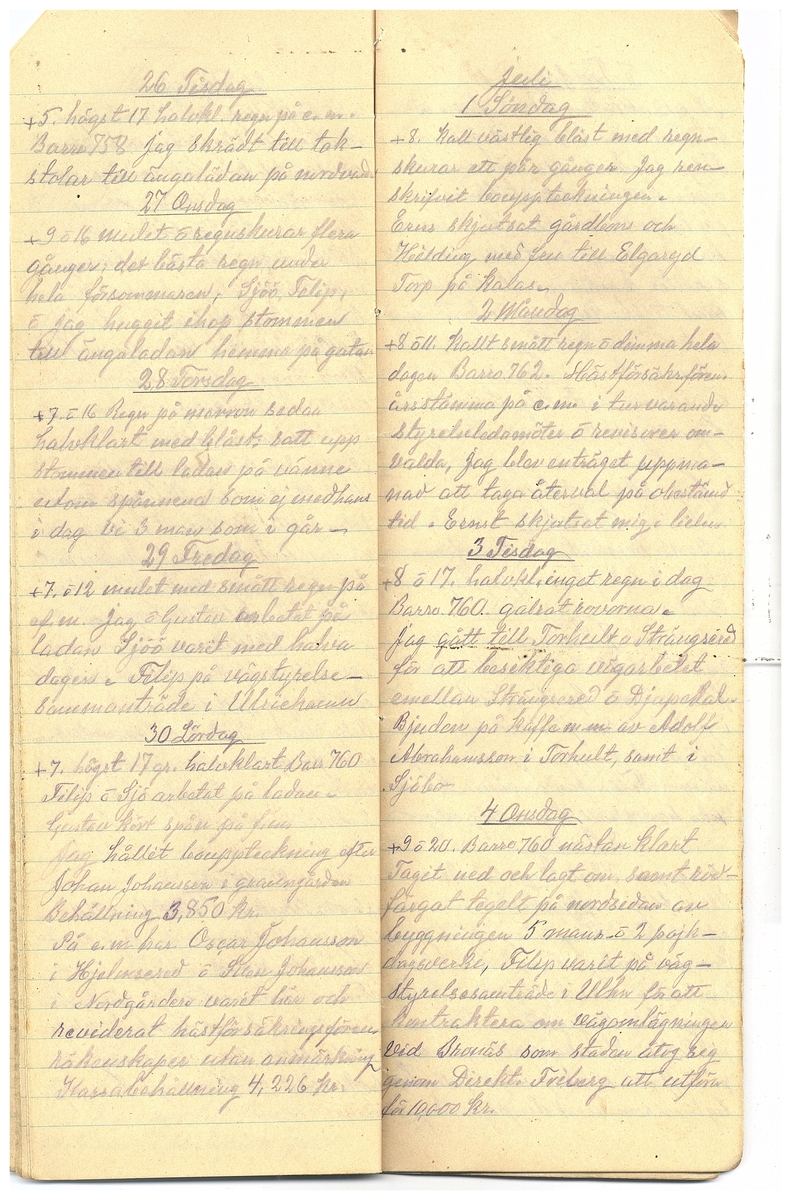 26 Tisdag
+5. högst 17 halvkl. regn på e.m.
Barro 758 jag skrädt till tak-
stolar till ängaladan på nordvad.
27 Onsdag
+9 ö 16 mulet ö regnskurar flera
gånger; det bästa regn under
hela försommaren; Sjöö, Felip,
ö jag huggit ihop stommen
till ängaladan hemma på gatan
28 Torsdag
+7. ö 16 Regn på morron sedan
halvklart med blåst; satt upp
stommen till ladan på vänne
utom spännena som ej medhans
i dag vi 3 man som i går -
29 Fredag
+7. ö 12 mulet med smått regn på
ef.m. Jag ö Gustav arbetat på
ladan Sjöö varit med halva
dagen. Felip på vägstyrelse-
sammanträde i Ulricehamn
30 Lördag
+7. högst 17 gr. halvklart Barr 760
Felip ö Sjö arbetat på ladan -
Gustav kört spån på f.m.
Jag hållit bouppteckning efter
Johan Johansson i gravengården
Behållning 3,850 kr.
På e.m har Oscar Johansson
i Hjelmsered ö Sten Johansson
i Nordgården varit här och
reviderat hästförsäkringsfören
räkenskaper utan anmärkning
Kassabehållning 4,226 kr.
Juli
1 Söndag
+8. Kall västlig blåst med regn-
skurar ett par gånger. Jag ren-
skrifvit bouppteckningen.
Erns skjutsat gårdbons och
Hilding med fru till Elgaryd
Torp på kalas.
2 Måndag
+8 ö 11. Kallt smått regn ö dimma hela
dagen Barro 762. Hästförsäkrfören.
årsstämma på e.m. i tur varande
styrelseledamöter ö revisorer om-
valda, Jag blev enträget uppma-
nad att taga återval på obestämd
tid. Ernst skjutsat mig i bielen
3 Tisdag
+8 ö 17. halvkl. inget regn i dag
Barro 760. galrat rovorna.
Jag gått till Torhult o Strängsered
för att besiktiga vägarbetet
emellan Strängsered ö Djupedal.
Bjuden på kaffe m m av Adolf
Abrahamsson i Torhult, samt i
Sjöbo
4 Onsdag
+9 ö 20. Barro 760 nästan klart
Taget ned och lagt om, samt röd-
färgat tegelt på nordsedan av
byggningen 5 mans- ö 2 pojk-
dagsverke, Felip varit på väg-
styrelsesamträde i Ulhn för att
kontraktera om vägomlägningen
vid Bronäs som staden åtog sig
genom Direkt. Friberg att utföra
för 10,000 kr.